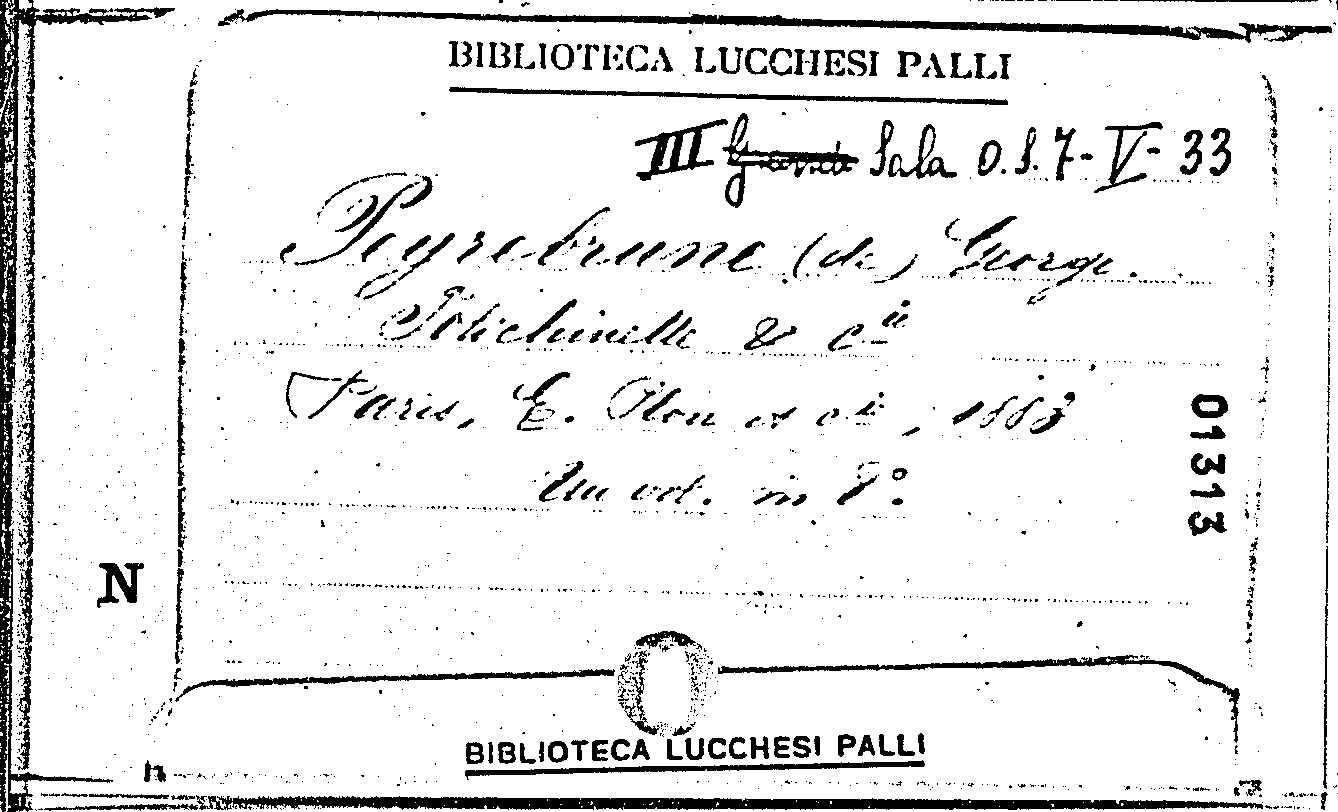 BIBLIOTECA LUCCHESI PALLI
III Sala O.S. 7-V-33
Peyrebrune (de) George.
Polichinelle & Cie
Paris, E. Plon et Cie, 1883
Un vol. in 8°.
01313
N
BIBLIOTECA LUCCHESI PALLI